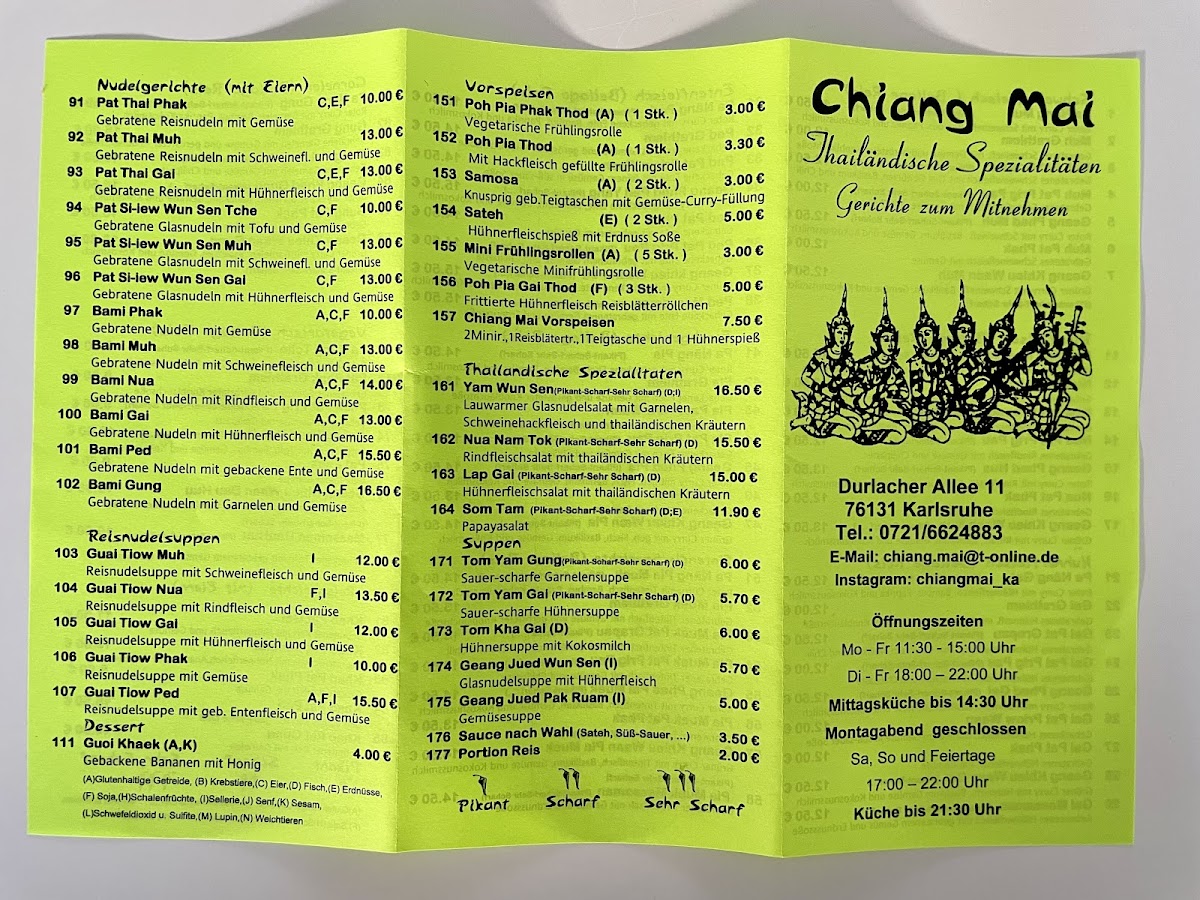 Nudelgerichte (mit Eiern)
91 Pat Thai Phak C,E,F 10.00 €
Gebratene Reisnudeln mit Gemüse
92 Pat Thai Muh 13.00 €
Gebratene Reisnudeln mit Schweinefl. und Gemüse
93 Pat Thai Gai C,E,F 13.00 €
Gebratene Reisnudeln mit Hühnerfleisch und Gemüse
94 Pat Si-lew Wun Sen Tche C,F 10.00 €
Gebratene Glasnudeln mit Tofu und Gemüse
95 Pat Si-iew Wun Sen Muh C,F 13.00 €
Gebratene Glasnudeln mit Schweinefl. und Gemüse
96 Pat Si-iew Wun Sen Gai C,F 13.00 €
Gebratene Glasnudeln mit Hühnerfleisch und Gemüse
97 Bami Phak A,C,F 10.00 €
Gebratene Nudeln mit Gemüse
98 Bami Muh A,C,F 13.00 €
Gebratene Nudeln mit Schweinefleisch und Gemüse
99 Bami Nua A,C,F 14.00 €
Gebratene Nudeln mit Rindfleisch und Gemüse
100 Bami Gai A,C,F 13.00 €
Gebratene Nudeln mit Hühnerfleisch und Gemüse
101 Bami Ped A,C,F 15.50 €
Gebratene Nudeln mit gebackene Ente und Gemüse
102 Bami Gung A,C,F 16.50 €
Gebratene Nudeln mit Garnelen und Gemüse
Reisnudelsuppen
103 Guai Tiow Muh I 12.00 €
Reisnudelsuppe mit Schweinefleisch und Gemüse
104 Guai Tiow Nua F,I 13.50 €
Reisnudelsuppe mit Rindfleisch und Gemüse
105 Guai Tiow Gai I 12.00 €
Reisnudelsuppe mit Hühnerfleisch und Gemüse
106 Guai Tiow Phak I 10.00 €
Reisnudelsuppe mit Gemüse
107 Guai Tiow Ped A,F,I 15.50 €
Reisnudelsuppe mit geb. Entenfleisch und Gemüse
Dessert
111 Guoi Khaek (A,K) 4.00 €
Gebackene Bananen mit Honig
(A)Glutenhaltige Getreide, (B) Krebstiere,(C) Eier,(D) Fisch,(E) Erdnüsse,
(F) Soja,(H)Schalenfrüchte, (I)Sellerie,(J) Senf,(K) Sesam,
(L)Schwefeldioxid u. Sulfite,(M) Lupin,(N) Weichtieren
Vorspeisen
151 Poh Pia Phak Thod (A) ( 1 Stk. ) 3.00 €
Vegetarische Frühlingsrolle
152 Poh Pia Thod (A) ( 1 Stk. ) 3.30 €
Mit Hackfleisch gefüllte Frühlingsrolle
153 Samosa (A) ( 2 Stk. ) 3.00 €
Knusprig geb.Teigtaschen mit Gemüse-Curry-Füllung
154 Sateh (E) ( 2 Stk. ) 5.00 €
Hühnerfleischspieß mit Erdnuss Soße
155 Mini Frühlingsrollen (A) ( 5 Stk. ) 3.00 €
Vegetarische Minifrühlingsrolle
156 Poh Pia Gai Thod (F) ( 3 Stk. ) 5.00 €
Frittierte Hühnerfleisch Reisblätterröllchen
157 Chiang Mai Vorspeisen 7.50 €
2Minir.,1Reisblätertr.,1Teigtasche und 1 Hühnerspieß
Thailändische Spezialitäten
161 Yam Wun Sen(Pikant-Scharf-Sehr Scharf) (D;I) 16.50 €
Lauwarmer Glasnudelsalat mit Garnelen,
Schweinehackfleisch und thailändischen Kräutern
162 Nua Nam Tok (Pikant-Scharf-Sehr Scharf) (D) 15.50 €
Rindfleischsalat mit thailändischen Kräutern
163 Lap Gai (Pikant-Scharf-Sehr Scharf) (D) 15.00 €
Hühnerfleischsalat mit thailändischen Kräutern
164 Som Tam (Pikant-Scharf-Sehr Scharf) (D;E) 11.90 €
Papayasalat
Suppen
171 Tom Yam Gung(Pikant-Scharf-Sehr Scharf) (D) 6.00 €
Sauer-scharfe Garnelensuppe
172 Tom Yam Gai (Pikant-Scharf-Sehr Scharf) (D) 5.70 €
Sauer-scharfe Hühnersuppe
173 Tom Kha Gai (D) 6.00 €
Hühnersuppe mit Kokosmilch
174 Geang Jued Wun Sen (I) 5.70 €
Glasnudelsuppe mit Hühnerfleisch
175 Geang Jued Pak Ruam (I) 5.00 €
Gemüsesuppe
176 Sauce nach Wahl (Sateh, Süß-Sauer, ...) 3.50 €
177 Portion Reis 2.00 €
Pikant Scharf Sehr Scharf
Chiang Mai
Thailändische Spezialitäten
Gerichte zum Mitnehmen
Durlacher Allee 11
76131 Karlsruhe
Tel.: 0721/6624883
E-Mail: chiang.mai@t-online.de
Instagram: chiangmai_ka
Öffnungszeiten
Mo - Fr 11:30 - 15:00 Uhr
Di - Fr 18:00 – 22:00 Uhr
Mittagsküche bis 14:30 Uhr
Montagabend geschlossen
Sa, So und Feiertage
17:00 – 22:00 Uhr
Küche bis 21:30 Uhr